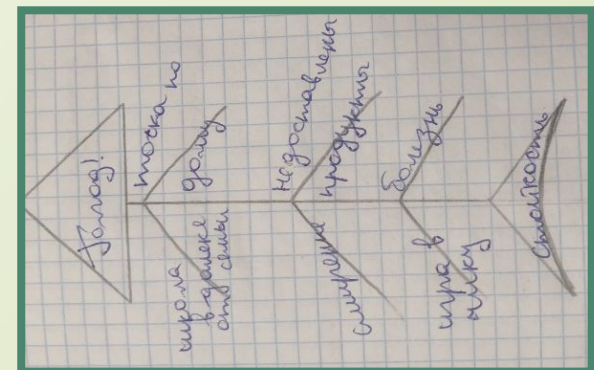 Голод!
тоска по
дому
школа
вдалеке
от семьи
Недоставлены
продукты
смирение
болезнь
игра в
чику
Стойкость